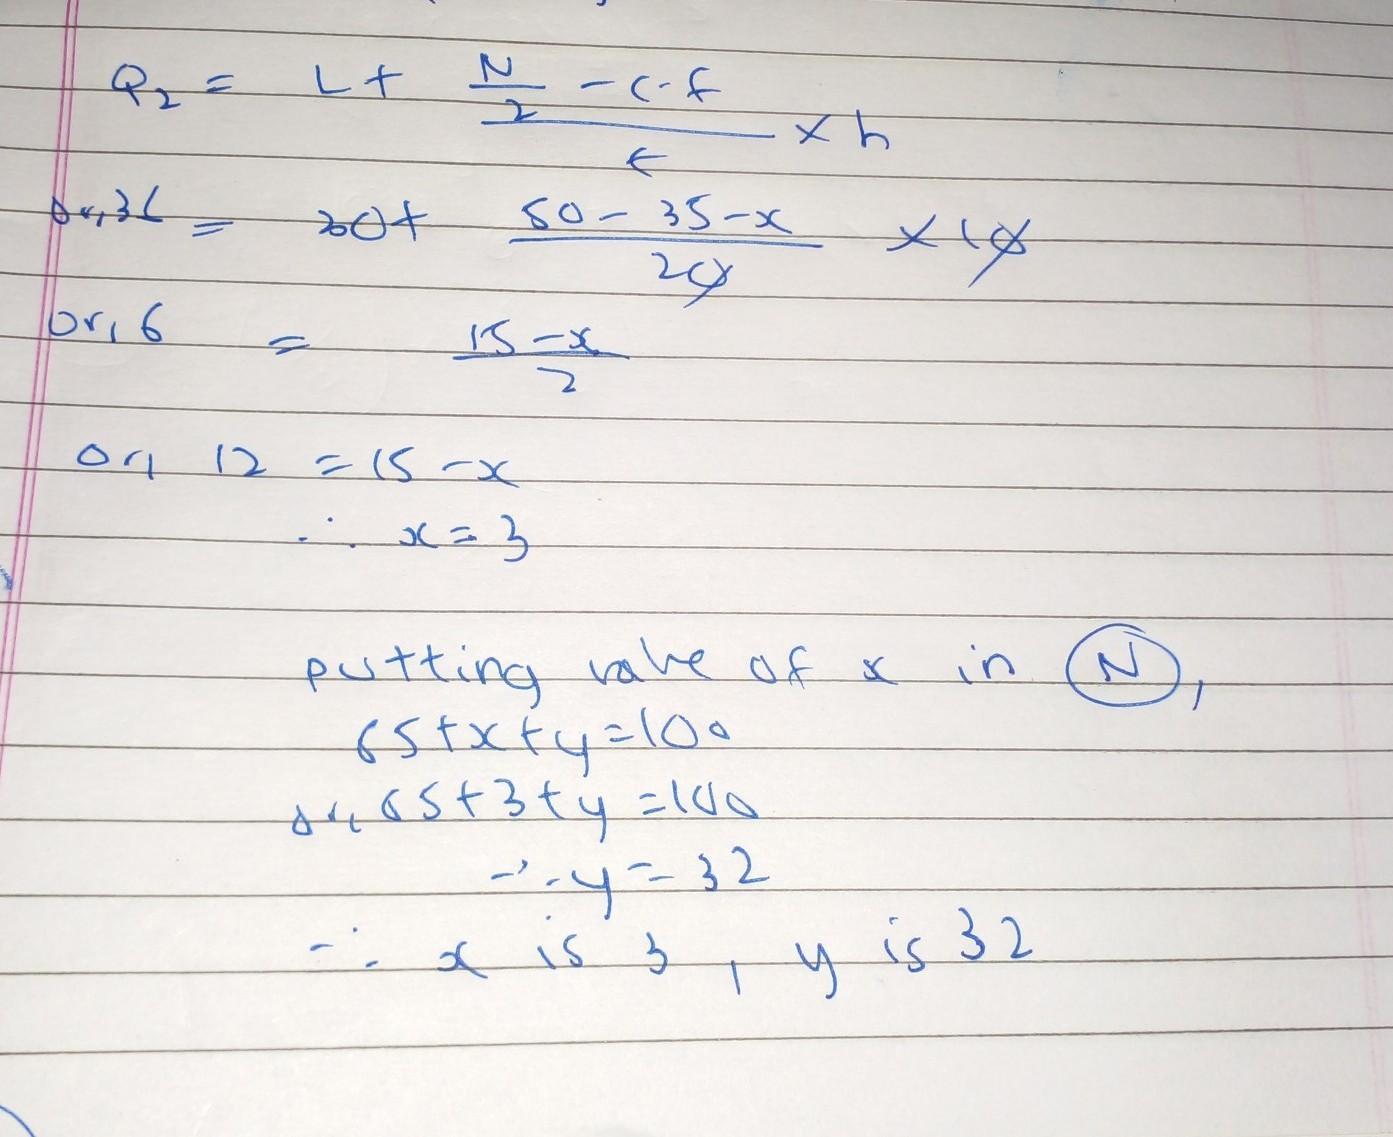 Q₂ = L + (N/2 - c.f)/f × h
or, 36 = 30 + (50 - 35 - x)/20 × 10
or, 6 = (15 - x)/2
or, 12 = 15 - x
∴ x = 3
putting value of x in N,
65 + x + y = 100
or, 65 + 3 + y = 100
∴ y = 32
∴ x is 3, y is 32